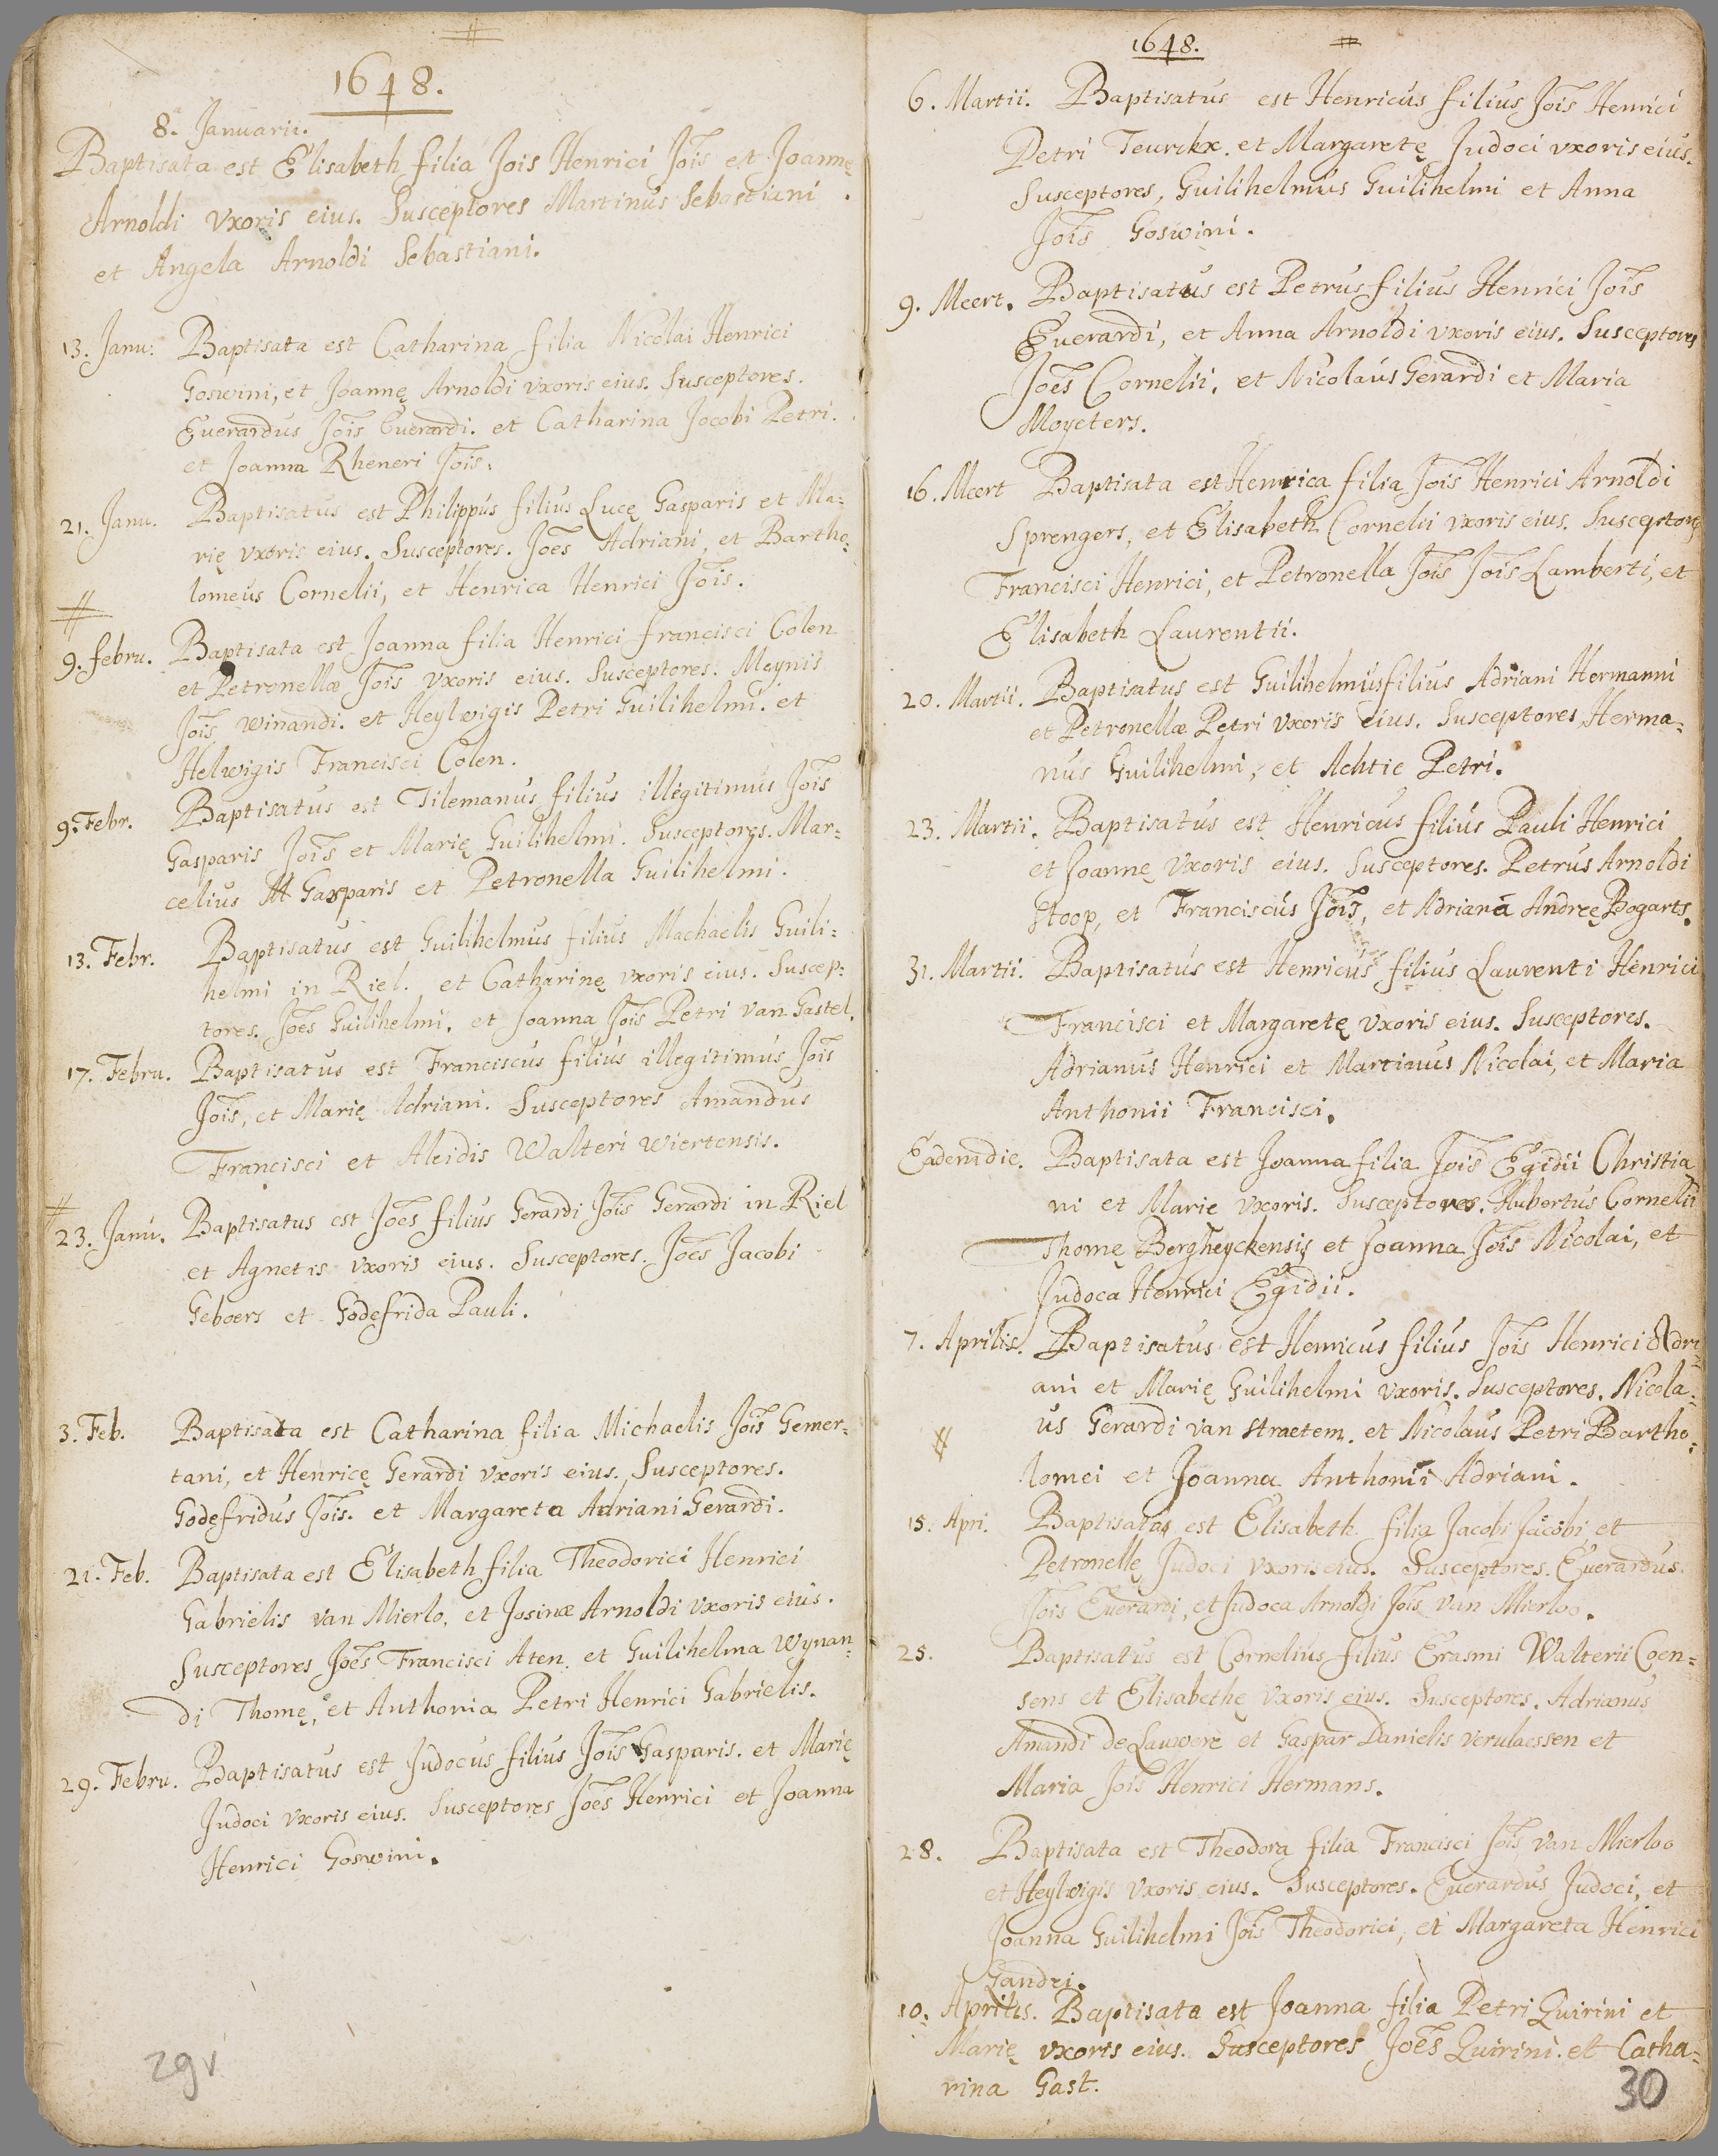 1648.
8. Januarii.
Baptisata est Elisabeth filia Jois Henrici Jois et Joannę
Arnoldi vxoris eius. Susceptores Martinus Sebastiani
et Angela Arnoldi Sebastiani.
13. Janu: Baptisata est Catharina filia Nicolai Henrici
Goswini, et Joannę Arnoldi vxoris eius. Susceptores.
Euerardus Jois Euerardi. et Catharina Jocobi Petri.
et Joanna Rheneri Jois.
21. Janu. Baptisatus est Philippus filius Lucę Gasparis et Ma:
rię vxoris eius. Susceptores. Joes Adriani, et Bartho:
lomeus Cornelii, et Henrica Henrici Jois.
9. febru. Baptisata est Joanna filia Henrici francisci Colen
et Petronellæ Jois vxoris eius. Susceptores. Meynis
Jois winandi. et Heylwigis Petri Guilihelmi. et
Helwigis Francisci Colen.
9. Febr. Baptisatus est Tilemanus filius illegitimus Jois
Gasparis Jois et Marię Guilihelmi. Susceptores. Mar:
celius Gasparis et Petronella Guilihelmi.
13. Febr. Baptisatus est Guilihelmus filius Machaelis Guili:
helmi in Riel. et Catharinę vxoris eius. Suscep:
tores. Joes Guilihelmi. et Joanna Jois Petri van Gastel.
17. Febru. Baptisatus est Franciscus filius illegitimus Jois
Jois, et Marię Adriani. Susceptores Amandus
Francisci et Aleidis Walteri wiertensis.
23. Janu. Baptisatus est Joes filius Gerardi Jois Gerardi in Riel
et Agnetis vxoris eius. Susceptores. Joes Jacobi
Geboers et Godefrida Pauli.
3. Feb. Baptisata est Catharina filia Michaelis Jois Gemer:
tani, et Henricę Gerardi vxoris eius. Susceptores.
Godefridus Jois. et Margareta Adriani Gerardi.
21. Feb. Baptisata est Elisabeth filia Theodorici Henrici
Gabrielis van Mierlo, et Josinæ Arnoldi vxoris eius.
Susceptores Joes Francisci Aten. et Guilihelma Wynan:
di Thomę, et Anthonia Petri Henrici Gabrielis.
29. Febru. Baptisatus est Judocus filius Jois Gasparis. et Marię
Judoci vxoris eius. Susceptores Joes Henrici et Joanna
Henrici Goswini.
29v
1648.
6. Martii. Baptisatus est Henricus filius Jois Henrici
Petri Teurckx. et Margaretę Judoci vxoris eius.
Susceptores, Guilihelmus Guilihelmi et Anna
Jois Goswini.
9. Meert. Baptisatus est Petrus filius Henrici Jois
Euerardi, et Anna Arnoldi vxoris eius. Susceptores
Joes Cornelii. et Nicolaus Gerardi et Maria
Moyeters.
16. Meert Baptisata est Henrica filia Jois Henrici Arnoldi
Sprengers, et Elisabeth Cornelii vxoris eius. Susceptores
Francisci Henrici, et Petronella Jois Jois Lamberti, et
Elisabeth Laurentii.
20. Martii. Baptisatus est Guilihelmus filius Adriani Hermanni
et Petronellæ Petri vxoris eius. Susceptores Herma:
nus Guilihelmi, et Achtie Petri.
23. Martii. Baptisatus est Henricus filius Pauli Henrici
et Joannę vxoris eius. Susceptores. Petrus Arnoldi
Stoop, et Franciscus Jois, et Adriana Andreę Bogarts.
31. Martii. Baptisatus est Henricus filius Laurenti Henrici
Francisci et Margaretę vxoris eius. Susceptores.
Adrianus Henrici et Martinus Nicolai, et Maria
Anthonii Francisci.
Eadem die. Baptisata est Joanna filia Jois Egidii Christia
ni et Marie vxoris. Susceptores. Hubertus Cornelii
Thomę Bergheyckensis et Joanna Jois Nicolai, et
Judoca Henrici Egidii.
7. Aprilis. Baptisatus est Henricus filius Jois Henrici Adri
ani et Marię Guilihelmi vxoris. Susceptores. Nicola:
us Gerardi van straetem. et Nicolaus Petri Bartho:
lomei et Joanna Anthonii Adriani.
15. Apri. Baptisata est Elisabeth filia Jacobi Jacobi et
Petronellę Judoci vxoris eius. Susceptores. Euerardus
Jois Euerardi, et Judoca Arnoldi Jois van Mierloo.
25. Baptisatus est Cornelius filius Erasmi Walterii Coen=
sens et Elisabethę vxoris eius. Susceptores. Adrianus
Amandi de Lauwere et Gaspar Danielis verulaessen et
Maria Jois Henrici Hermans.
28. Baptisata est Theodora filia Francisci Jois van Mierloo
et Heylwigis vxoris eius. Susceptores. Euerardus Judoci, et
Joanna Guilihelmi Jois Theodorici, et Margareta Henrici
Gandri.
10. Aprilis. Baptisata est Joanna filia Petri Quirini et
Marię vxoris eius. Susceptores Joes Quirini. et Catha:
rina Gast.
30